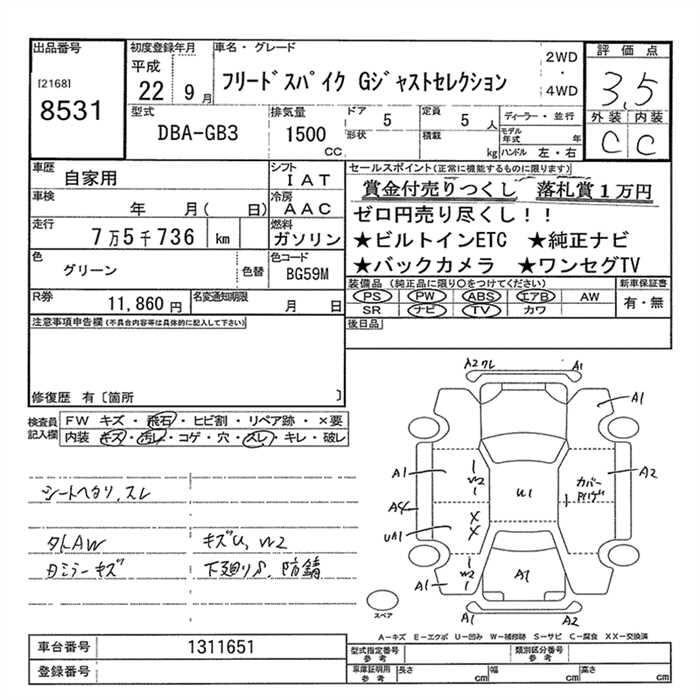 出品番号
[2168]
8531
初度登録年月
平成
22 9月
車名・グレード
フリードスパイク Gジャストセレクション
2WD
・
4WD
評価点
3,5
外装 内装
C C
型式
DBA-GB3
排気量
1500
CC
ドア
5
形状
定員
5 人
積載
kg
ディーラー・並行
モデル年式 年
ハンドル 左・右
車歴
自家用
シフト
IAT
車検
年 月( 日)
冷房
AAC
走行
7万5千736 km
燃料
ガソリン
色
グリーン
色替
色コード
BG59M
R券
11,860円
名変通知期限
月 日
セールスポイント(正常に機能するものに限ります)
賞金付売りつくし 落札賞1万円
ゼロ円売り尽くし!!
★ビルトインETC ★純正ナビ
★バックカメラ ★ワンセグTV
装備品(純正品に限り○をつけてください)
PS PW ABS エアB AW
SR ナビ TV カワ
新車保証書
有・無
後日品
注意事項申告欄(不具合内容等は具体的に記入して下さい)
修復歴 有〔箇所 〕
検査員記入欄
FW キズ・飛石・ヒビ割・リペア跡・×要
内装 キズ・汚レ・コゲ・穴・スレ・キレ・破レ
シートヘタリ、スレ
タトAW キズU、W2
日ミラーキズ 下廻りS、防錆
A2 クレ A1
A1
A1
W2
U1
カバー
A2
A4
UA1
X
X
A1
W2
A1
A1 A2
スペア
A-キズ E-エクボ U-凹み W-補修跡 S-サビ C-腐食 XX-交換済
車台番号
1311651
登録番号
型式指定番号
参考
類別区分番号
参考
車庫証明用
参考
長さ cm 幅 cm 高さ cm